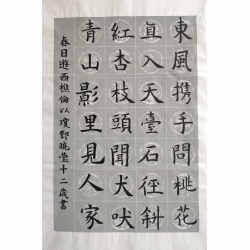 東風携手問桃花
直入天臺石徑斜
紅杏枝頭聞犬吠
青山影里見人家
春日遊西樵倫以瓊鄧曉瑩十二歲書